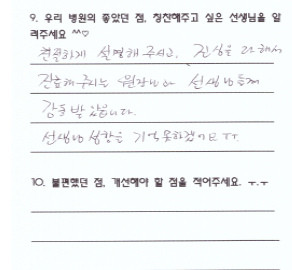 9. 우리 병원의 좋았던 점, 칭찬해주고 싶은 선생님을 알
려주세요 ^^♡
친절하게 설명해 주시고, 진심을 다해서
진료해주시는 원장님과 선생님들께
감동 받았습니다.
선생님 성함은 기억못하겠어요ㅠㅠ
10. 불편했던 점, 개선해야 할 점을 적어주세요. ㅜ.ㅜ